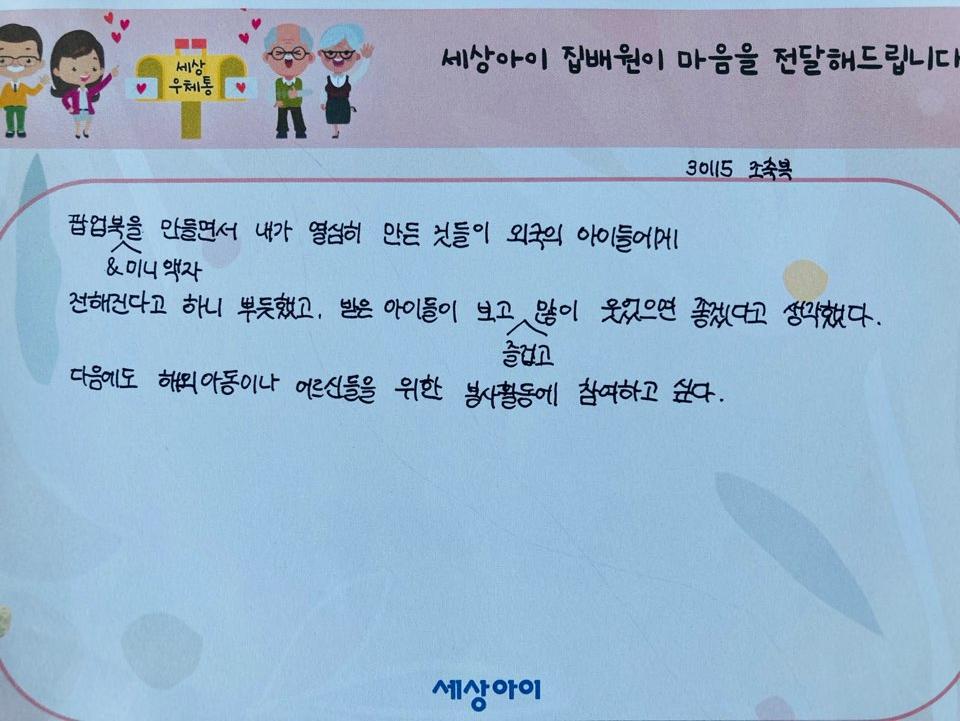 세상
우체통
세상아이 집배원이 마음을 전달해드립니다
30115 조축복
팝업북을 만들면서 내가 열심히 만든 것들이 외국의 아이들에게
&미니 액자
전해진다고 하니 뿌듯했고, 받은 아이들이 보고 많이 웃었으면 좋겠다고 생각했다.
즐겁고
다음에도 해외아동이나 어르신들을 위한 봉사활동에 참여하고 싶다.
세상아이